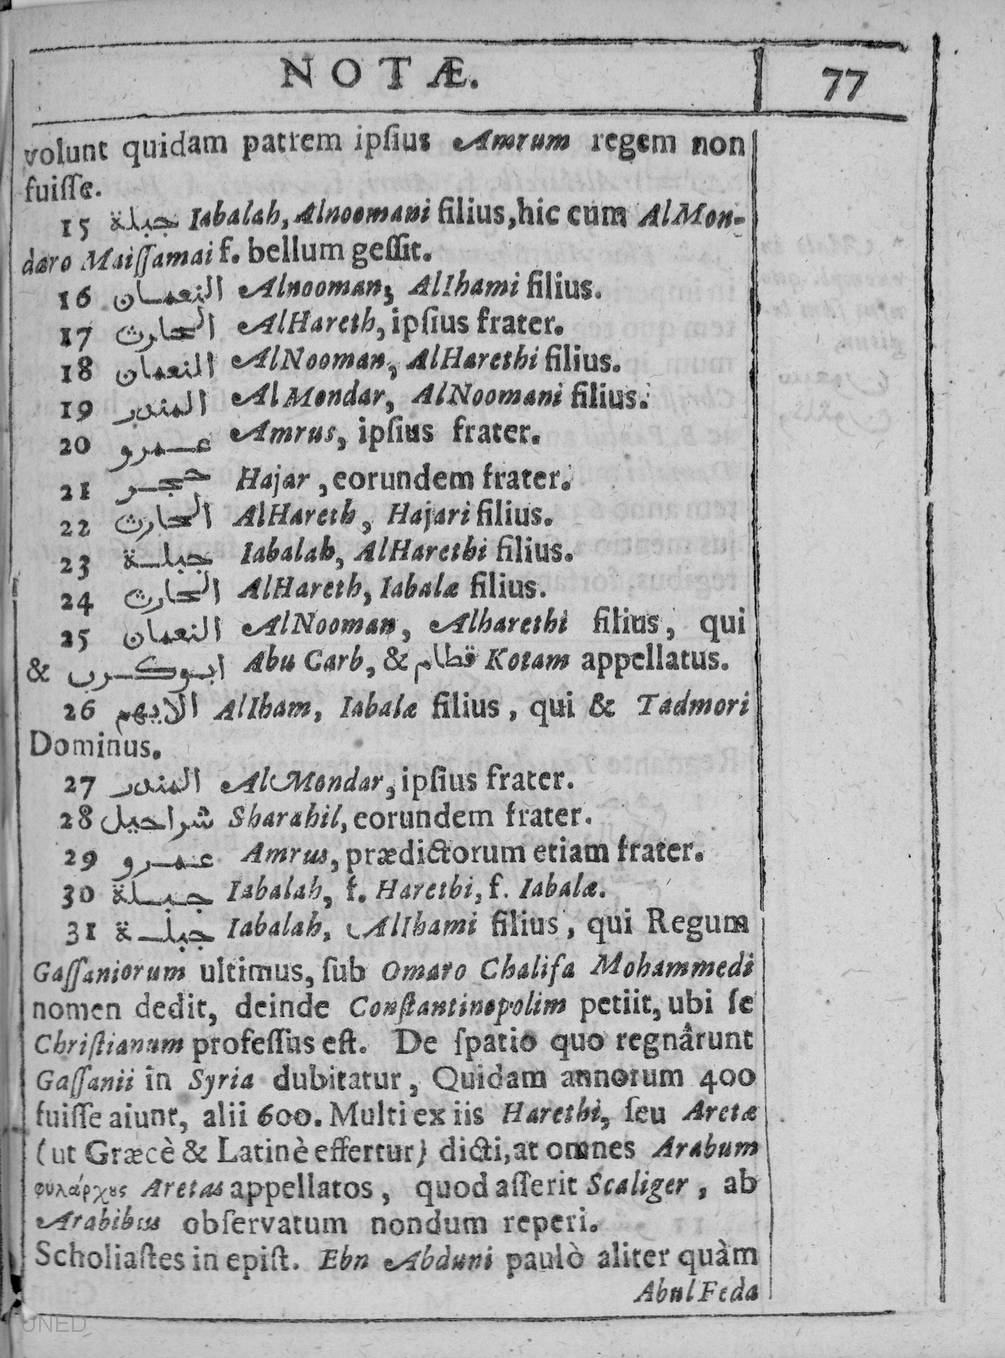 NOTÆ. 77
volunt quidam patrem ipſius Amrum regem non
fuiſſe.
15 جبلة Iabalah, Alnoomani filius, hic cum AlMon-
daro Maiſſamai f. bellum geſſit.
16 النعمان Alnooman, AlIhami filius.
17 الحارث AlHareth, ipſius frater.
18 النعمان AlNooman, AlHarethi filius.
19 المندر AlMondar, AlNoomani filius.
20 عمرو Amrus, ipſius frater.
21 حجر Hajar, eorundem frater.
22 الحارث AlHareth, Hajari filius.
23 جبلة Iabalah, AlHarethi filius.
24 الحارث AlHareth, Iabalæ filius.
25 النعمان AlNooman, Alharethi filius, qui
& ابوكرب Abu Carb, & قطام Kotam appellatus.
26 الايهم AlIham, Iabalæ filius, qui & Tadmori
Dominus.
27 المندر AlMondar, ipſius frater.
28 شراحيل Sharahil, eorundem frater.
29 عمرو Amrus, prædictorum etiam frater.
30 جبلة Iabalah, f. Harethi, f. Iabalæ.
31 جبلة Iabalah, AlIhami filius, qui Regum
Gaſſaniorum ultimus, ſub Omaro Chalifa Mohammedi
nomen dedit, deinde Conſtantinopolim petiit, ubi ſe
Chriſtianum profeſſus eſt. De ſpatio quo regnârunt
Gaſſanii in Syria dubitatur, Quidam annorum 400
fuiſſe aiunt, alii 600. Multi ex iis Harethi, ſeu Aretæ
(ut Græcè & Latinè effertur) dicti, at omnes Arabum
φυλάρχȣς Aretas appellatos, quod aſſerit Scaliger, ab
Arabibus obſervatum nondum reperi.
Scholiaſtes in epiſt. Ebn Abduni paulò aliter quàm
AbulFeda
UNED